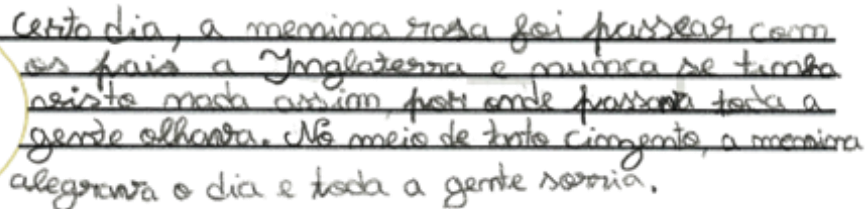 certo dia, a menina rosa foi passear com
os pais a Inglaterra e nunca se tinha
visto nada assim, por onde passava toda a
gente olhava. No meio de tnto cinzento, a menina
alegrava o dia e toda a gente sorria.